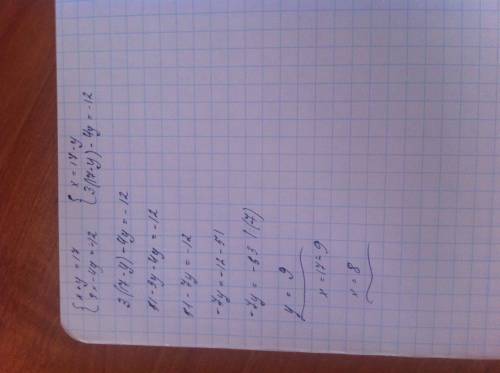 { x+y=17 { x=17-y
{ 3x-4y=-12 { 3(17-y)-4y=-12
3(17-y)-4y=-12
51-3y-4y=-12
51-7y=-12
-7y=-12-51
-7y=-63 |(7)
y=9
x=17-9
x=8